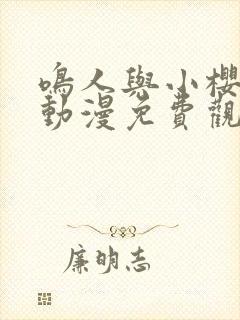 鳴人與小櫻
動漫免費觀
廉明志